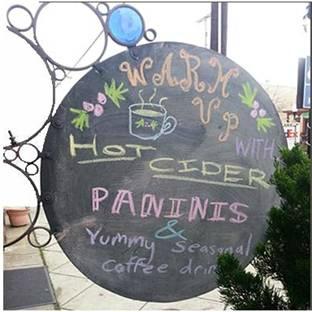 WARM
UP
WITH
HOT CIDER
PANINIS
&
Yummy Seasonal
coffee